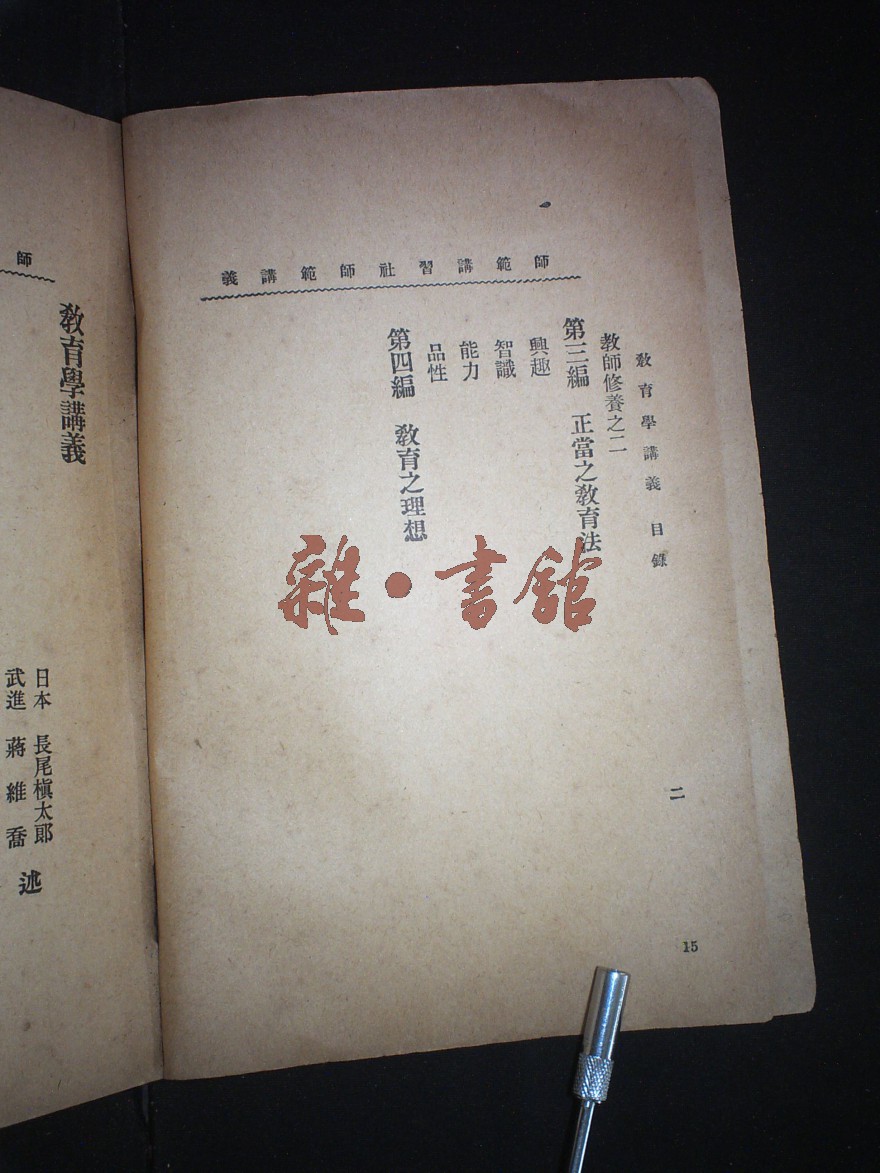 師範講習社師範講義
教育學講義 目錄
二
15
教師修養之二
第三編 正當之教育法
興趣
智識
能力
品性
第四編 教育之理想
雜·書館
師
教育學講義
日本 長尾槇太郎
武進 蔣維喬
述